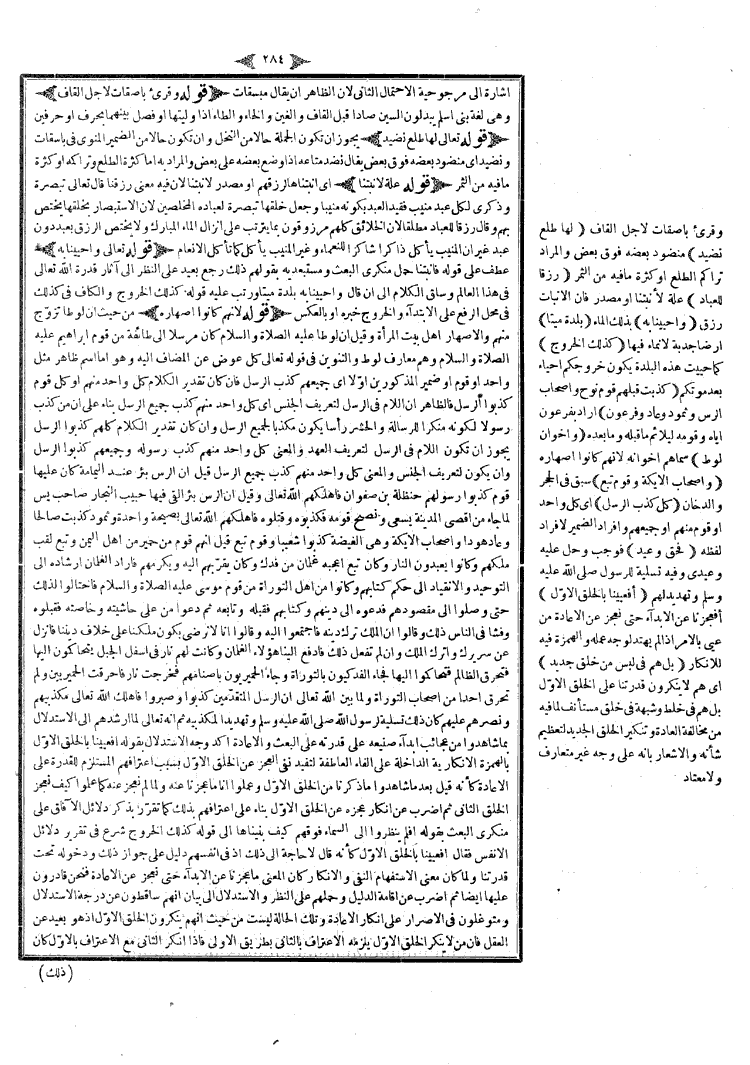 ٢٨٤
اشارة الى مرجوحية الاحتمال الثانى لان الظاهر ان يقال مبسقات قوله وقرئ باصقات لاجل القاف
وهى لغة بنى اسلم يبدلون السين صادا قبل القاف والغين والخاء والطاء اذا وليتها او فصل بينهما بحرف او حرفين
قوله تعالى لها طلع نضيد يجوز ان تكون الجملة حالا من النخل وان تكون حالا من الضمير المنوى فى باسقات
ونضيد اى منضود بعضه فوق بعض يقال نضد متاعه اذا وضع بعضه على بعض والمراد به اما كثرة الطلع وتراكه او كثرة
مافيه من الثمر قوله علة لانبتنا اى انبتناها رزقهم او مصدر لانبتنا لان فيه معنى رزقنا قال تعالى تبصرة
وذكرى لكل عبد منيب فقيد العبد بكونه منيبا وجعل خلقها تبصرة لعباده المخلصين لان الاستبصار بخلقها يختص
بهم وقال رزقا للعباد مطلقا لان الخلائق كلهم مرزقون بما يترتب على انزال الماء المبارك ولا يختص الرزق بعبد دون
عبد غير ان المنيب يأكل ذاكرا شاكرا للنعماء وغير المنيب يأكل كما تأكل الانعام قوله تعالى واحيينا به
عطف على قوله فانبتنا حمل منكرى البعث ومستبعديه بقولهم ذلك رجع بعيد على النظر الى آثار قدرة الله تعالى
فى هذا العالم وساق الكلام الى ان قال واحيينا به بلدة ميتا ورتب عليه قوله كذلك الخروج والكاف فى كذلك
فى محل الرفع على الابتداء والخروج خبره او بالعكس قوله لانهم كانوا اصهاره من حيث ان لوطا تزوج
منهم والاصهار اهل بيت المرأة وقيل ان لوطا عليه الصلاة والسلام كان مرسلا الى طائفة من قوم ابراهيم عليه
الصلاة والسلام وهم معارف لوط والتنوين فى قوله تعالى كل عوض عن المضاف اليه وهو اما اسم ظاهر مثل
واحد او قوم او ضمير المذكورين اولا اى جميعهم كذب الرسل فان كان تقدير الكلام كل واحد منهم او كل قوم
كذبوا الرسل فالظاهر ان اللام فى الرسل لتعريف الجنس اى كل واحد منهم كذب جميع الرسل بناء على ان من كذب
رسولا لكونه منكرا للرسالة والحشر رأسا يكون مكذبا لجميع الرسل وان كان تقدير الكلام كلهم كذبوا الرسل
يجوز ان تكون اللام فى الرسل لتعريف العهد والمعنى كل واحد منهم كذب رسوله وجميعهم كذبوا الرسل
وان يكون لتعريف الجنس والمعنى كل واحد منهم كذب جميع الرسل قيل ان الرس بئر عند اليمامة كان عليها
قوم كذبوا رسولهم حنظلة بن صفوان فاهلكهم الله تعالى وقيل ان الرس بئر التى فيها حبيب النجار صاحب يس
لما جاء من اقصى المدينة يسعى ونصح قومه فكذبوه وقتلوه فاهلكهم الله تعالى بصيحة واحدة وثمود كذبت صالحا
وعاد هودا واصحاب الايكة وهى الغيضة كذبوا شعيبا وقوم تبع قيل انهم قوم من حمير من اهل اليمن وتبع لقب
ملكهم وكانوا يعبدون النار وكان تبع اعجبه غلمان من فدك وكان يقربهم اليه ويكرمهم فاراد الغلمان ارشاده الى
التوحيد والانقياد الى حكم كتابهم وكانوا من اهل التوراة من قوم موسى عليه الصلاة والسلام فاحتالوا لذلك
حتى وصلوا الى مقصودهم فدعوه الى دينهم وكتابهم فقبله وتابعه ثم دعوا من على حاشيته وخاصته فقبلوه
وفشا فى الناس ذلك وقالوا ان الملك ترك دينه فاجتمعوا اليه وقالوا انا لا نرضى بكون ملكنا على خلاف ديننا فانزل
عن سريرك واترك الملك وان لم تفعل ذلك فادفع الينا هؤلاء الغلمان وكانت لهم نار فى اسفل الجبل يتحاكمون اليها
فتحرق الظالم فتحاكموا اليها فجاء الفدكيون بالتوراة وجاء الحميريون باصنامهم فخرجت نار فاحرقت الحميريين ولم
تحرق احدا من اصحاب التوراة ولما بين الله تعالى ان الرسل المتقدمين كذبوا وصبروا فاهلك الله تعالى مكذبيهم
ونصرهم عليهم كان ذلك تسلية لرسول الله صلى الله عليه وسلم وتهديدا لمكذبيه ثم انه تعالى لما ارشدهم الى الاستدلال
بما شاهدوا من عجائب ابداء صنيعه على قدرته على البعث والاعادة اكد وجه الاستدلال بقوله افعيينا بالخلق الاول
بالهمزة الانكارية الداخلة على الفاء العاطفة لتفيد نفى العجز عن الخلق الاول بسبب اعترافهم المستلزم للقدرة على
الاعادة كأنه قيل بعد ما شاهدوا ما ذكرنا من الخلق الاول وعملوا انا ما عجزنا عنه ولما لم نعجز عنه كما عملوا كيف نعجز
الخلق الثانى ثم اضرب عن انكار عجزه عن الخلق الاول بناء على اعترافهم بذلك كما تقرر بذكر دلائل الآفاق على
منكرى البعث بقوله افلم ينظروا الى السماء فوقهم كيف بنيناها الى قوله كذلك الخروج شرع فى تقرير دلائل
الانفس فقال افعيينا بالخلق الاول كأنه قال لا حاجة الى ذلك اذ فى انفسهم دليل على جواز ذلك ودخوله تحت
قدرتنا ولما كان معنى الاستفهام النفى والانكار كان المعنى ما عجزنا عن الابداء حتى نعجز عن الاعادة فنحن قادرون
عليها ايضا ثم اضرب عن اقامة الدليل وحملهم على النظر والاستدلال الى بيان انهم ساقطون عن درجة الاستدلال
ومتوغلون فى الاصرار على انكار الاعادة وتلك الحالة ليست من حيث انهم ينكرون الخلق الاول اذ هو بعيد عن
العقل فان من لا ينكر الخلق الاول يلزمه الاعتراف بالثانى بطريق الاولى فاذا انكر الثانى مع الاعتراف بالاول كان
(ذلك)
وقرئ باصقات لاجل القاف (لها طلع
نضيد) منضود بعضه فوق بعض والمراد
تراكم الطلع او كثرة مافيه من الثمر (رزقا
للعباد) علة لأنبتنا او مصدر فان الانبات
رزق (واحيينا به) بذلك الماء (بلدة ميتا)
ارضا جدبة لانماء فيها (كذلك الخروج)
كما حييت هذه البلدة يكون خروجكم احياء
بعد موتكم (كذبت قبلهم قوم نوح واصحاب
الرس وثمود وعاد وفرعون) اراد بفرعون
اياه وقومه ليلائم ماقبله وما بعده (واخوان
لوط) سماهم اخوانه لانهم كانوا اصهاره
(واصحاب الايكة وقوم تبع) سبق فى الحجر
والدخان (كل كذب الرسل) اى كل واحد
او قوم منهم او جميعهم وافراد الضمير لافراد
لفظه (فحق وعيد) فوجب وحل عليه
وعيدى وفيه تسلية للرسول صلى الله عليه
وسلم وتهديد لهم (أفعيينا بالخلق الاول)
أفعجزنا عن الابداء حتى نعجز عن الاعادة من
عيى بالامر اذا لم يهتد لوجه عمله والهمزة فيه
للانكار (بل هم فى لبس من خلق جديد)
اى هم لا ينكرون قدرتنا على الخلق الاول
بل هم فى خلط وشبهة فى خلق مستأنف لما فيه
من مخالفة العادة وتنكير الخلق الجديد لتعظيم
شأنه والاشعار بانه على وجه غير متعارف
ولا معتاد